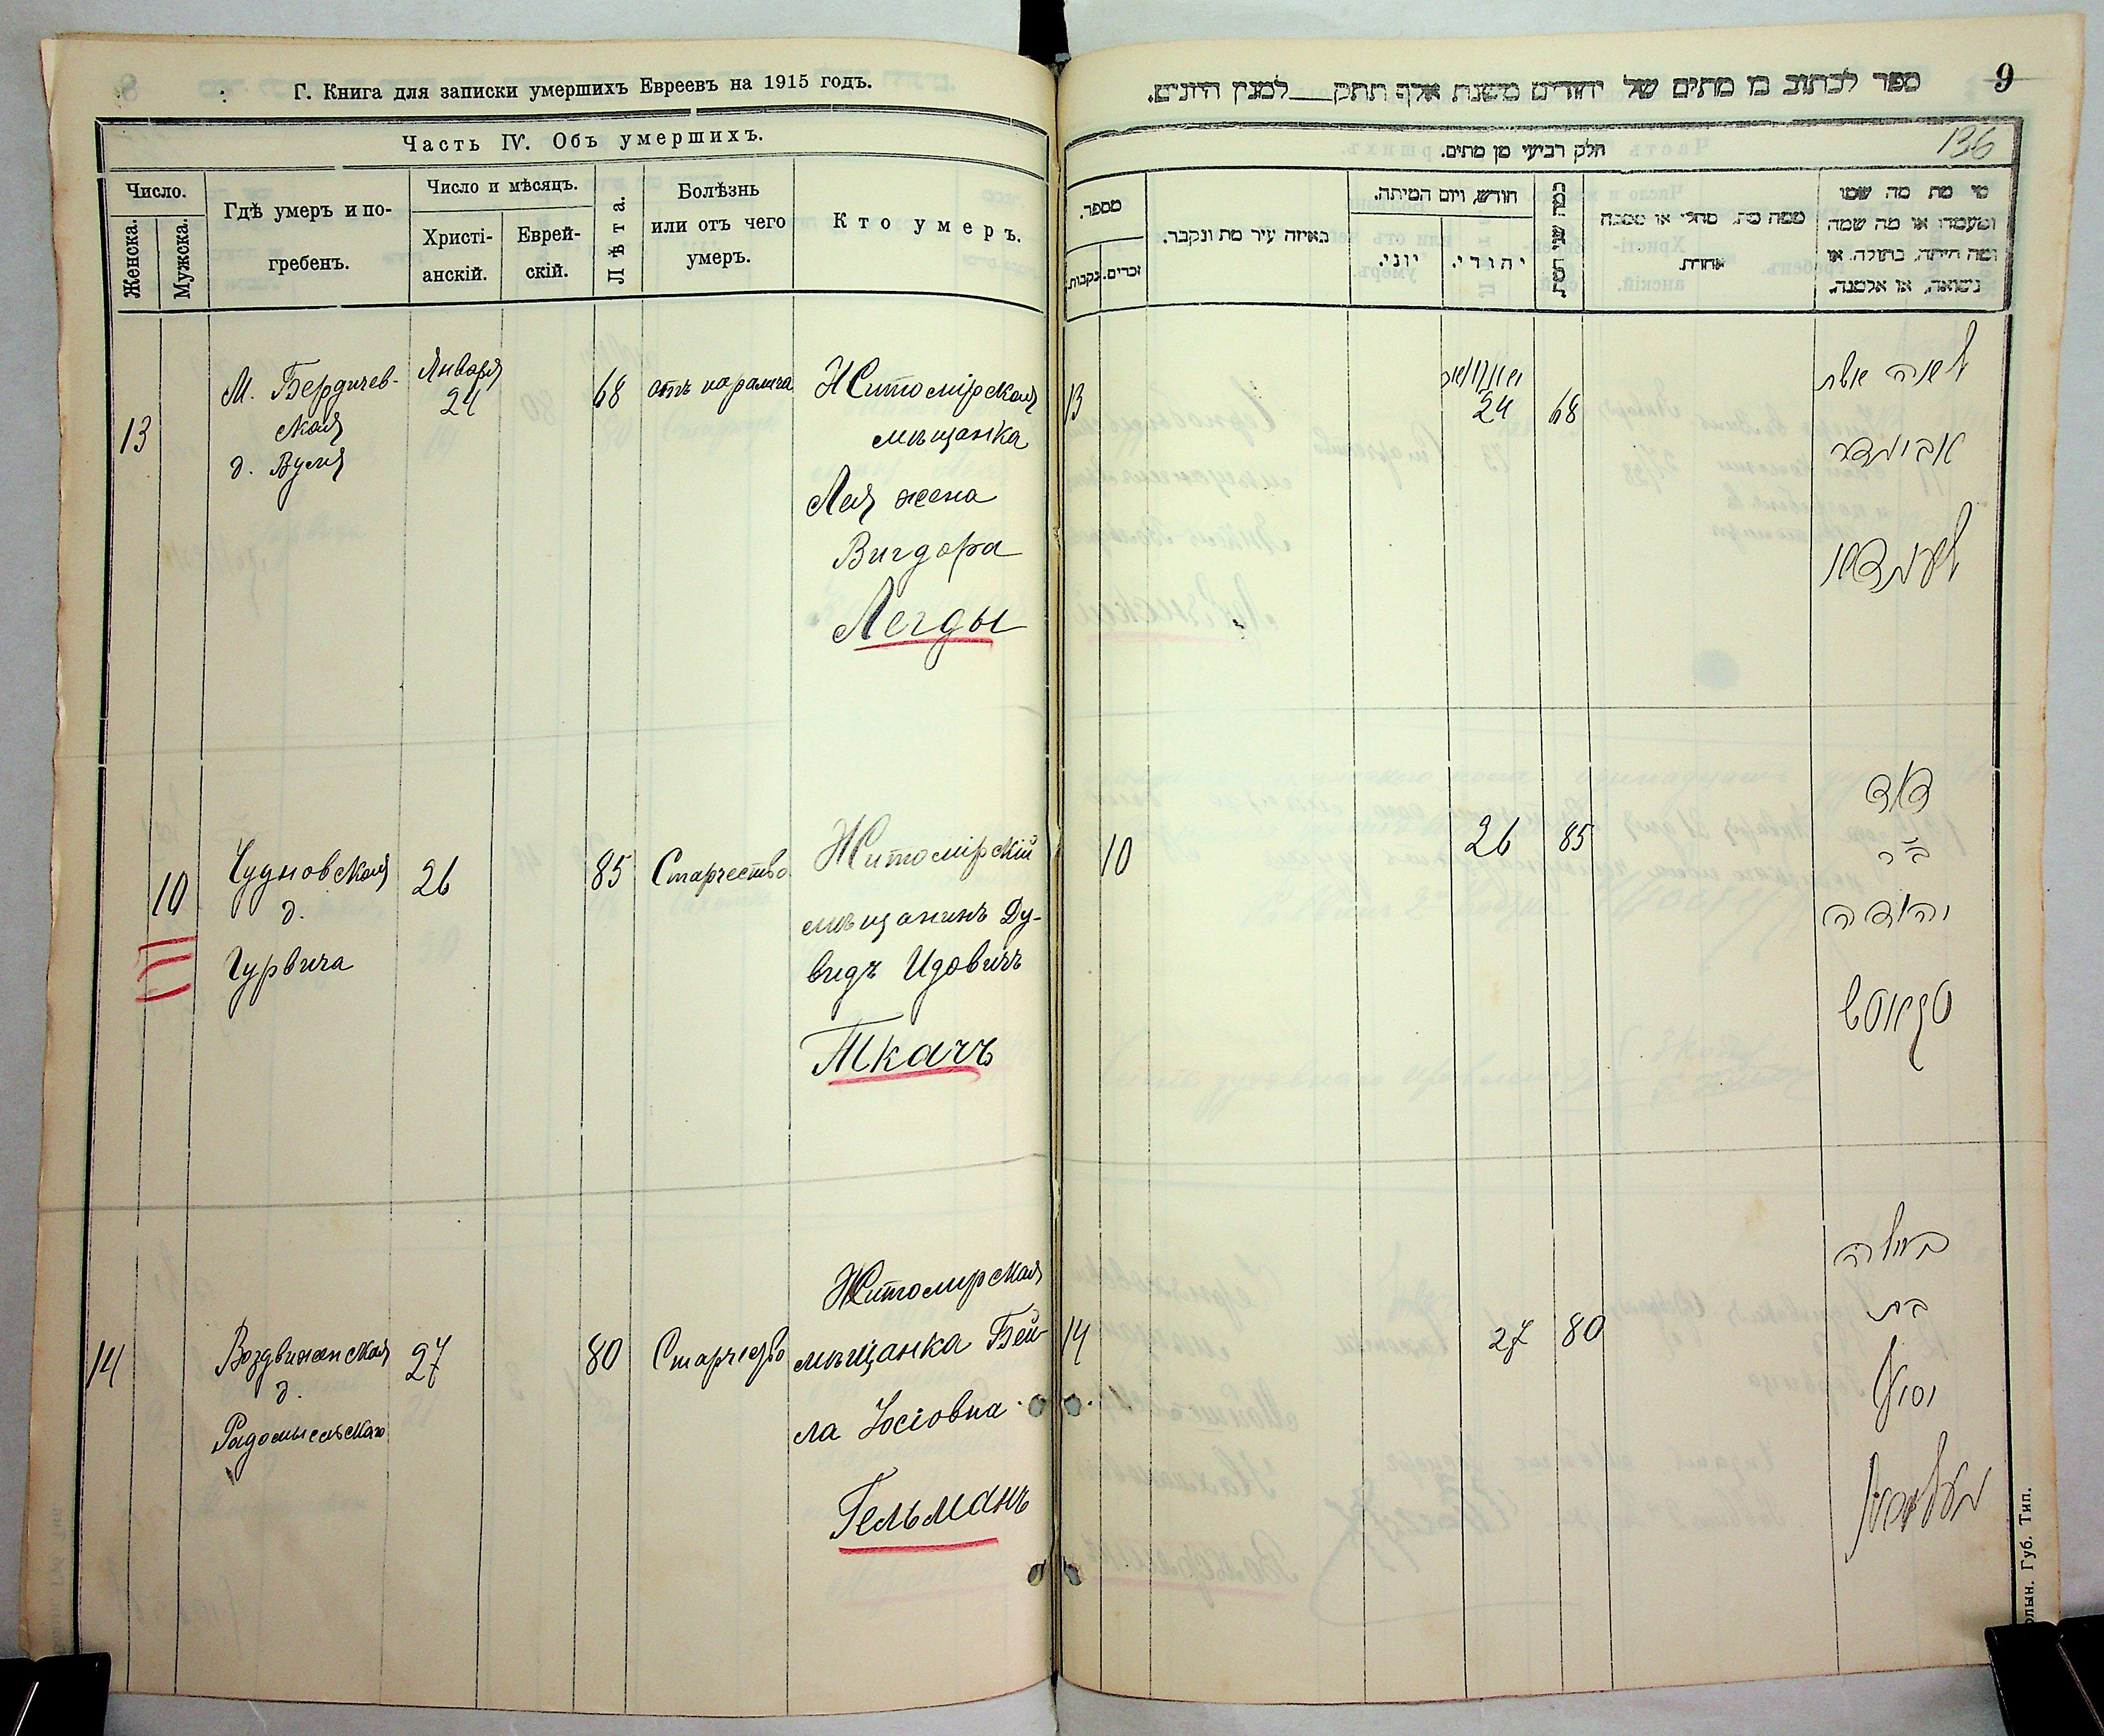 Г. Книга для записки умершихъ Евреевъ на 1915 годъ.
Часть IV. Объ умершихъ.
Число.
Женска.
Мужска.
Гдѣ умеръ и по-
гребенъ.
Число и мѣсяцъ.
Христі-
анскій.
Еврей-
скій.
Лѣта.
Болѣзнь
или отъ чего
умеръ.
Кто умеръ.
13
М. Бердичев-
ская
д.
Января
24
68
отъ паралича
Житомірская
мѣщанка
Лея жена
Вигдора
Легды
10
Чудновская
д.
Гурвича
26
85
Старчество
Житомірскій
мѣщанинъ Ду-
видъ Идовичъ
Ткачъ
14
Воздвиженская
д.
Радомысльскаго
27
80
Старчество
Житомирская
мѣщанка Бей-
ла Іосіовна
Гельманъ
9
ספר לכתוב בו מתים של יהודים משנת אלף תתק___למנין היונים.
136
חלק רביעי מן מתים.
מספר.
נקבות.
זכרים.
באיזה עיר מת ונקבר.
חודש, ויום המיתה.
יוני.
יהודי.
ממה מת, מחלי או מסבה
אחרת.
מי מת מה שמו
ומעמדו או מה שמה
ומה היתה, בתולה, או
נשואה, או אלמנה.
13
24
68
לאה אשת
אביגדר
10
26
85
דוד
ב״ר
יהודה
טקאטש
14
27
80
ביילה
בת
יוסף
געלמאן
Губ. Тип.